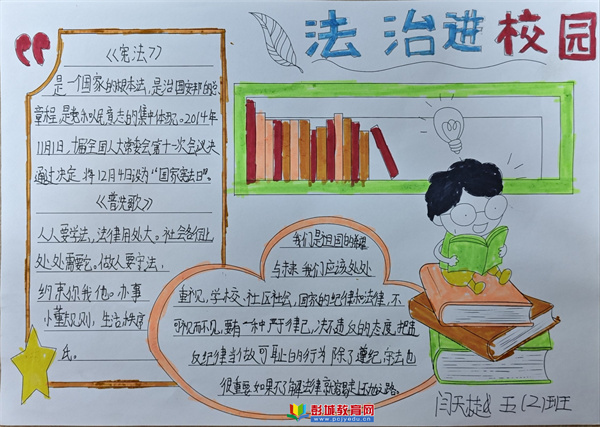 法治进校园
《宪法》
是一个国家的根本法,是治国安邦的总
章程,是党和人民意志的集中体现。2014年
11月1日,十届全国人大常委会第十一次会议决
通过决定,将12月4日设为“国家宪法日”。
《普法歌》
人人要学法,法律用处大。社会各行业
处处需要它。做人要守法,
约束你我他。办事
懂规则,生活秩序
我们是祖国的希望
与未来,我们应该处处
重视,学校、社区社会,国家的纪律和法律,不
可视而不见,要有一种严于律己,决不违反的态度,把违
反纪律当做可耻的行为 除了遵纪,守法也
很重要,如果不了解法律,就容易走上不归之路。
闫天 五(2)班
彭城教育网
www.pcjyedu.cn